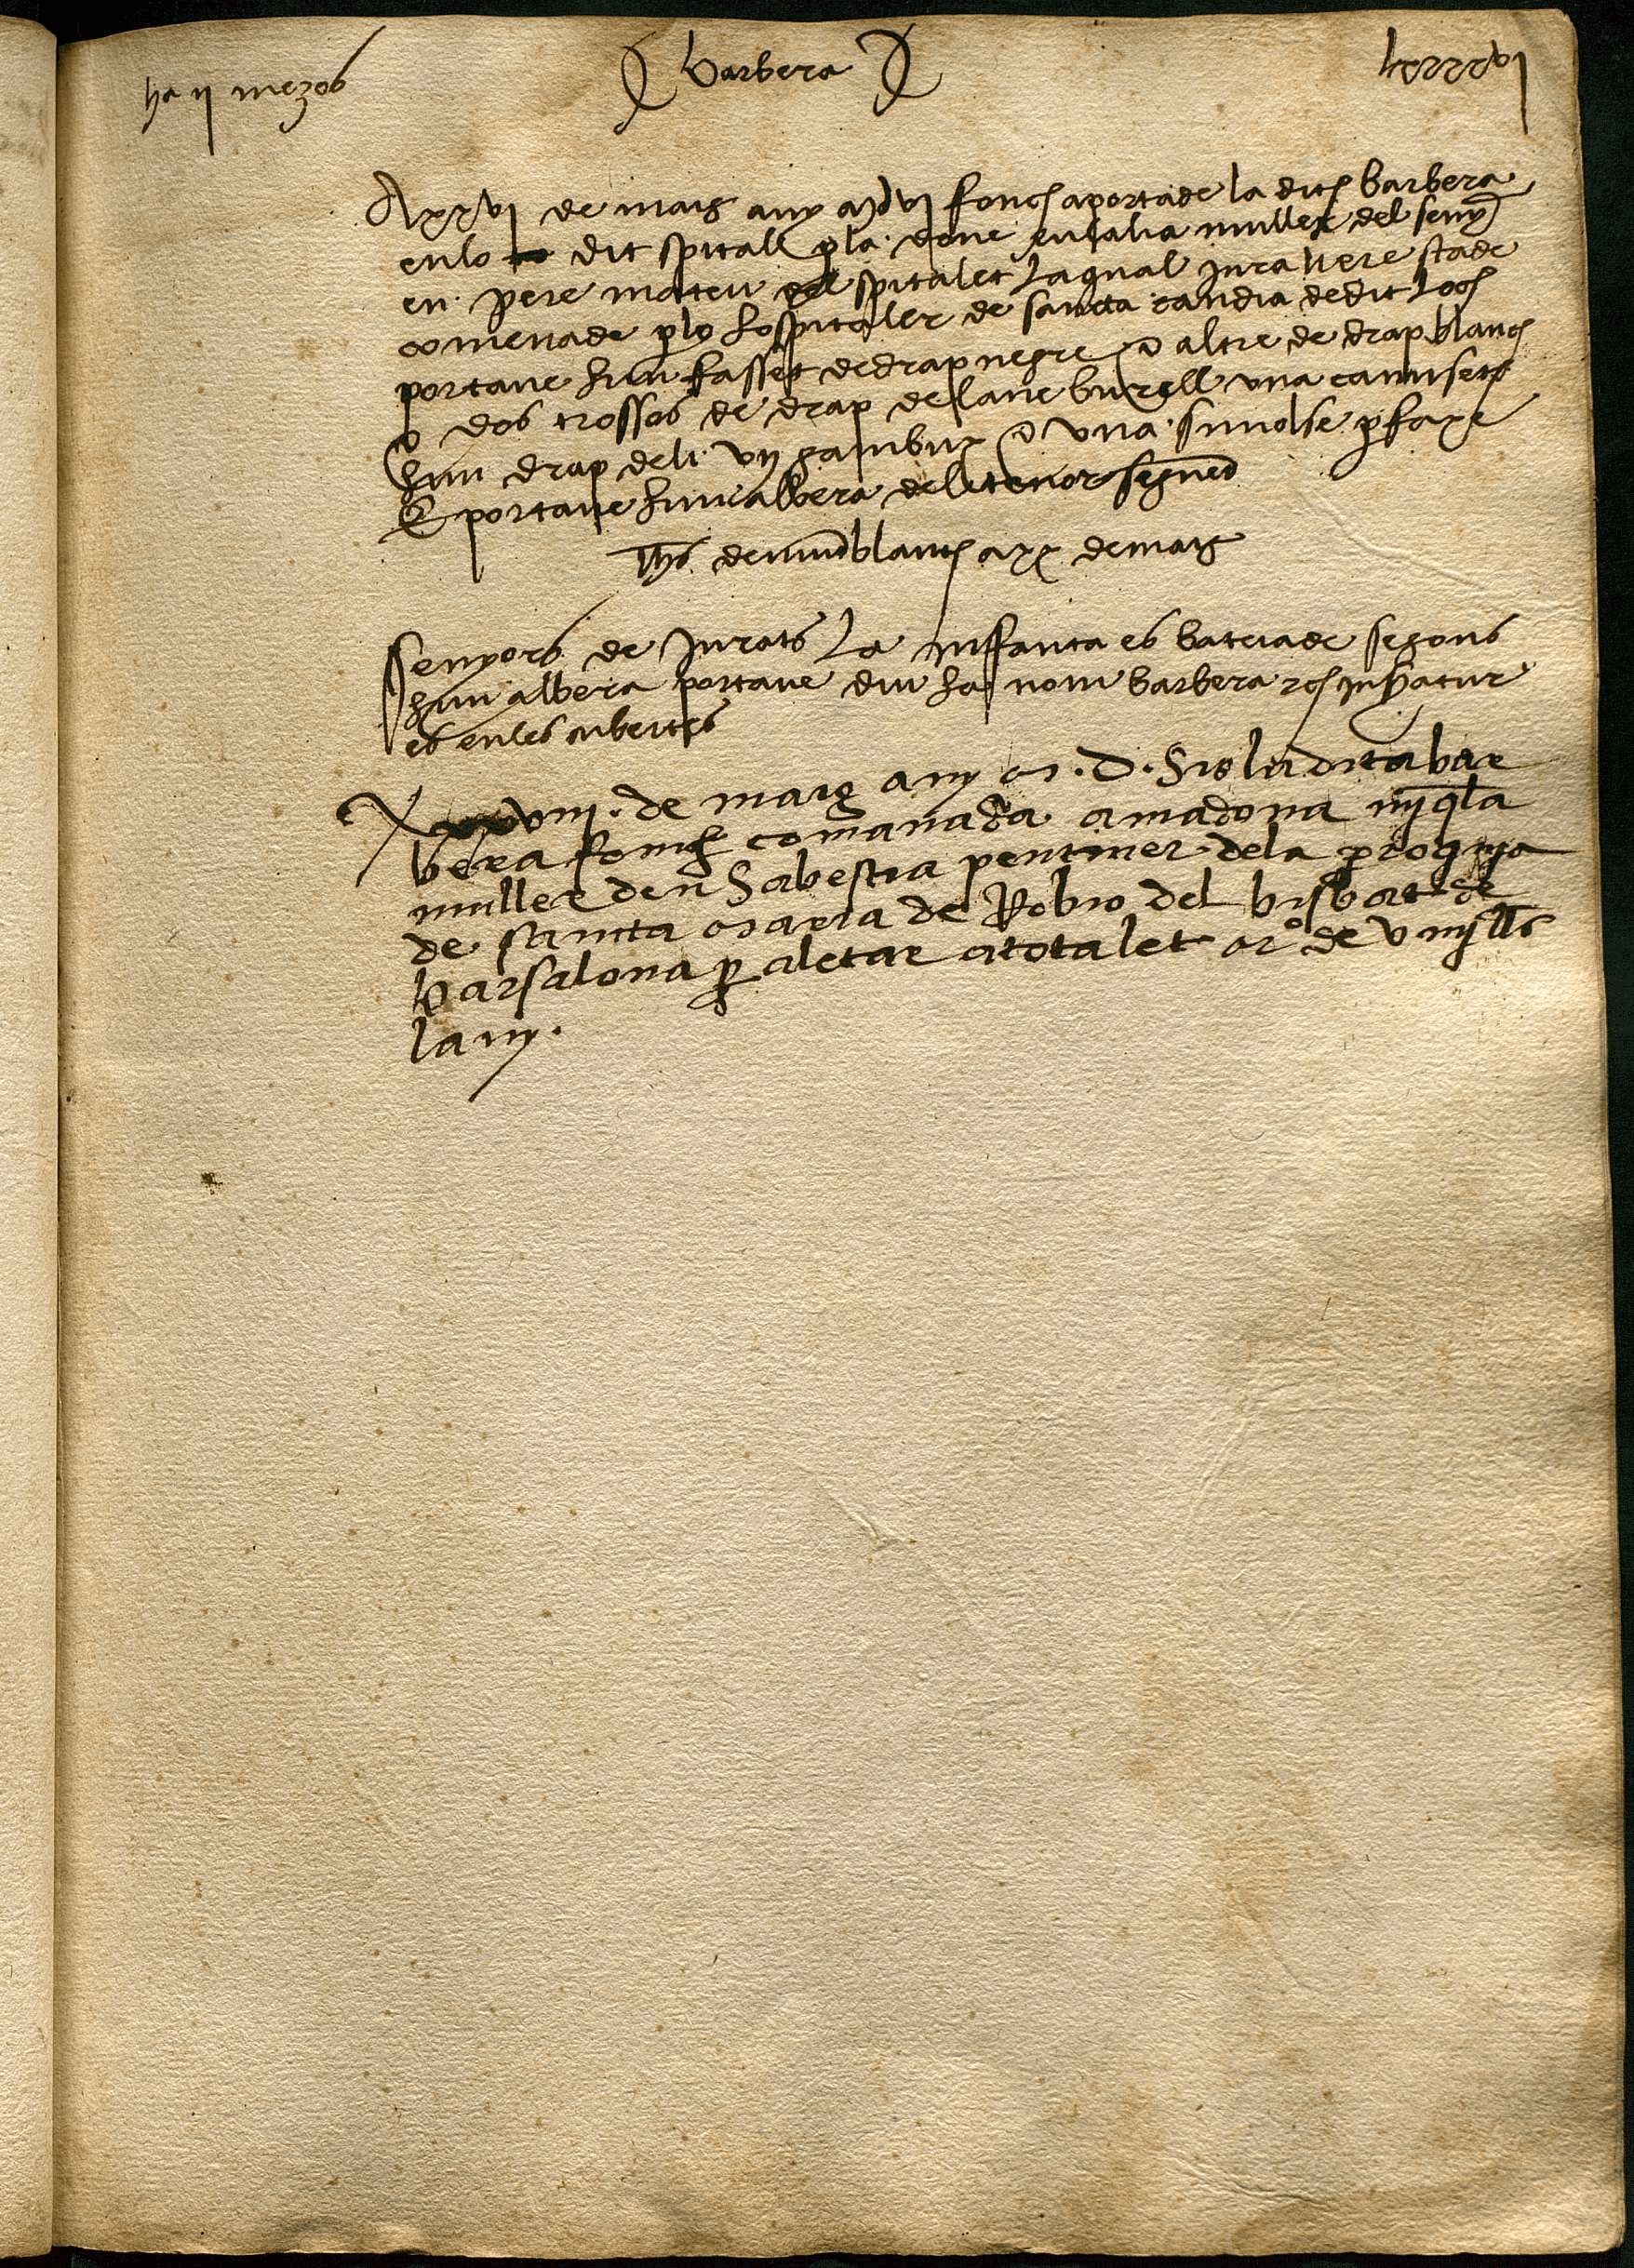 ha ii mezos
Barbera
lxxxxvi
A xxvi de maig any MDvi fonch aportade la dita barbera
en lo dit spitall per la done eulalia muller del seny
en pere mateu del spitalet la qual jura here stade
comenade per lo hospitaler de sancta candia de dit loch
portave hun fasset de drap negre e altre de drap blanch
e dos trossos de drap de lane burell una camiseta
hun drap de li vii gambux e una simolse per faxe
E portave hun albera del tenor seguent
Jhs de muntblanch a xx de maig
Senyors de Jurats La inffanta es bateiade segons
hun albera portave diu ha nom barbera
es en les cubertes
A xxviii de maig any M.D. sis la dita bar
bera fonch comanada a madona
muller den Sabestia pentiner dela
de santa maria de Robio del bisbat de
barsalona per aletar a tota let a ro de viiii lls
lany.